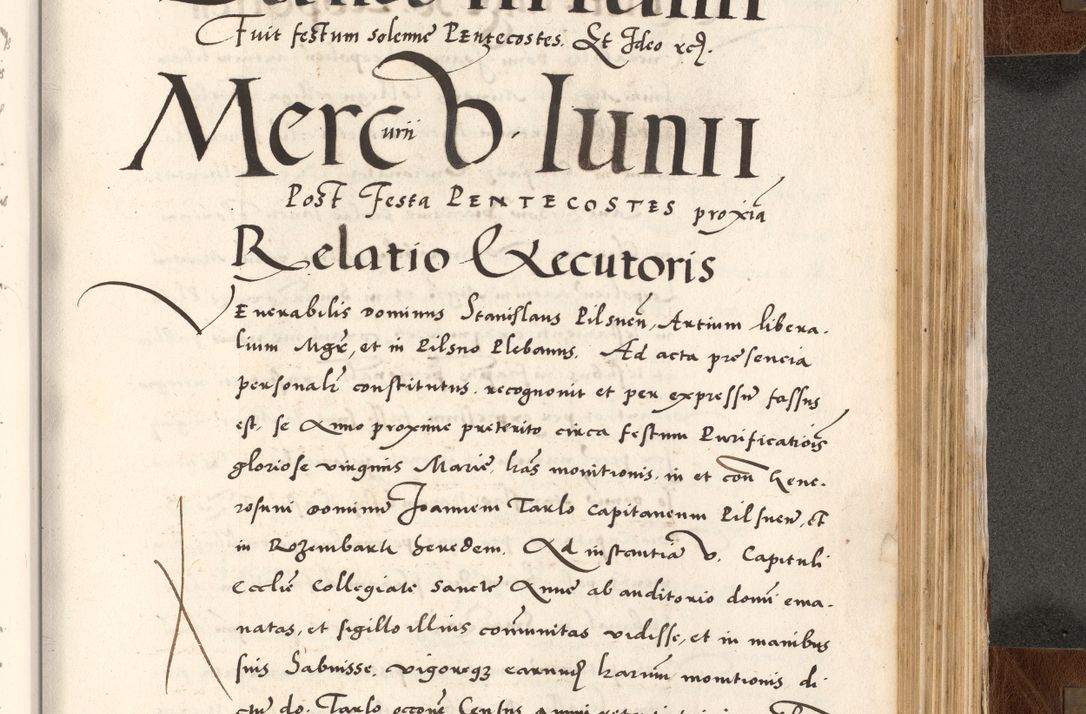 Fuit festum solenne PENtecostes. Et Ideo rcʒ.
Merc urii V. Iunii
POST Festa PENTECOSTES proxiā
Relatio Executoris
VEnerabilis Dominus Stanislaus Pilsneñ, Artium libera-
lium Mgr̄, et in Pilsno Plebanus. Ad acta presencia
personalr̄ constitutus. recognovit et per expressū fassus
est. se Anno proxime preterito circa festum Purificatiōis
gloriose virginis Marie, lrās monitionis, in et coñ Gene-
rosum Dominum Joannem Tarlo Capitaneum Pilsneñ, et
in Rozembark heredem. Ad instantiā V. Capituli
Ecclīe Collegiate Sancte Anne ab auditorio domī ema-
natas, et sigillo illius com̄unitas vidisse, et in manibus
suis Habuisse, vigoreqʒ earundʒ lrarum̄ monitionis di-
ctū do. Tarlo occōne Census